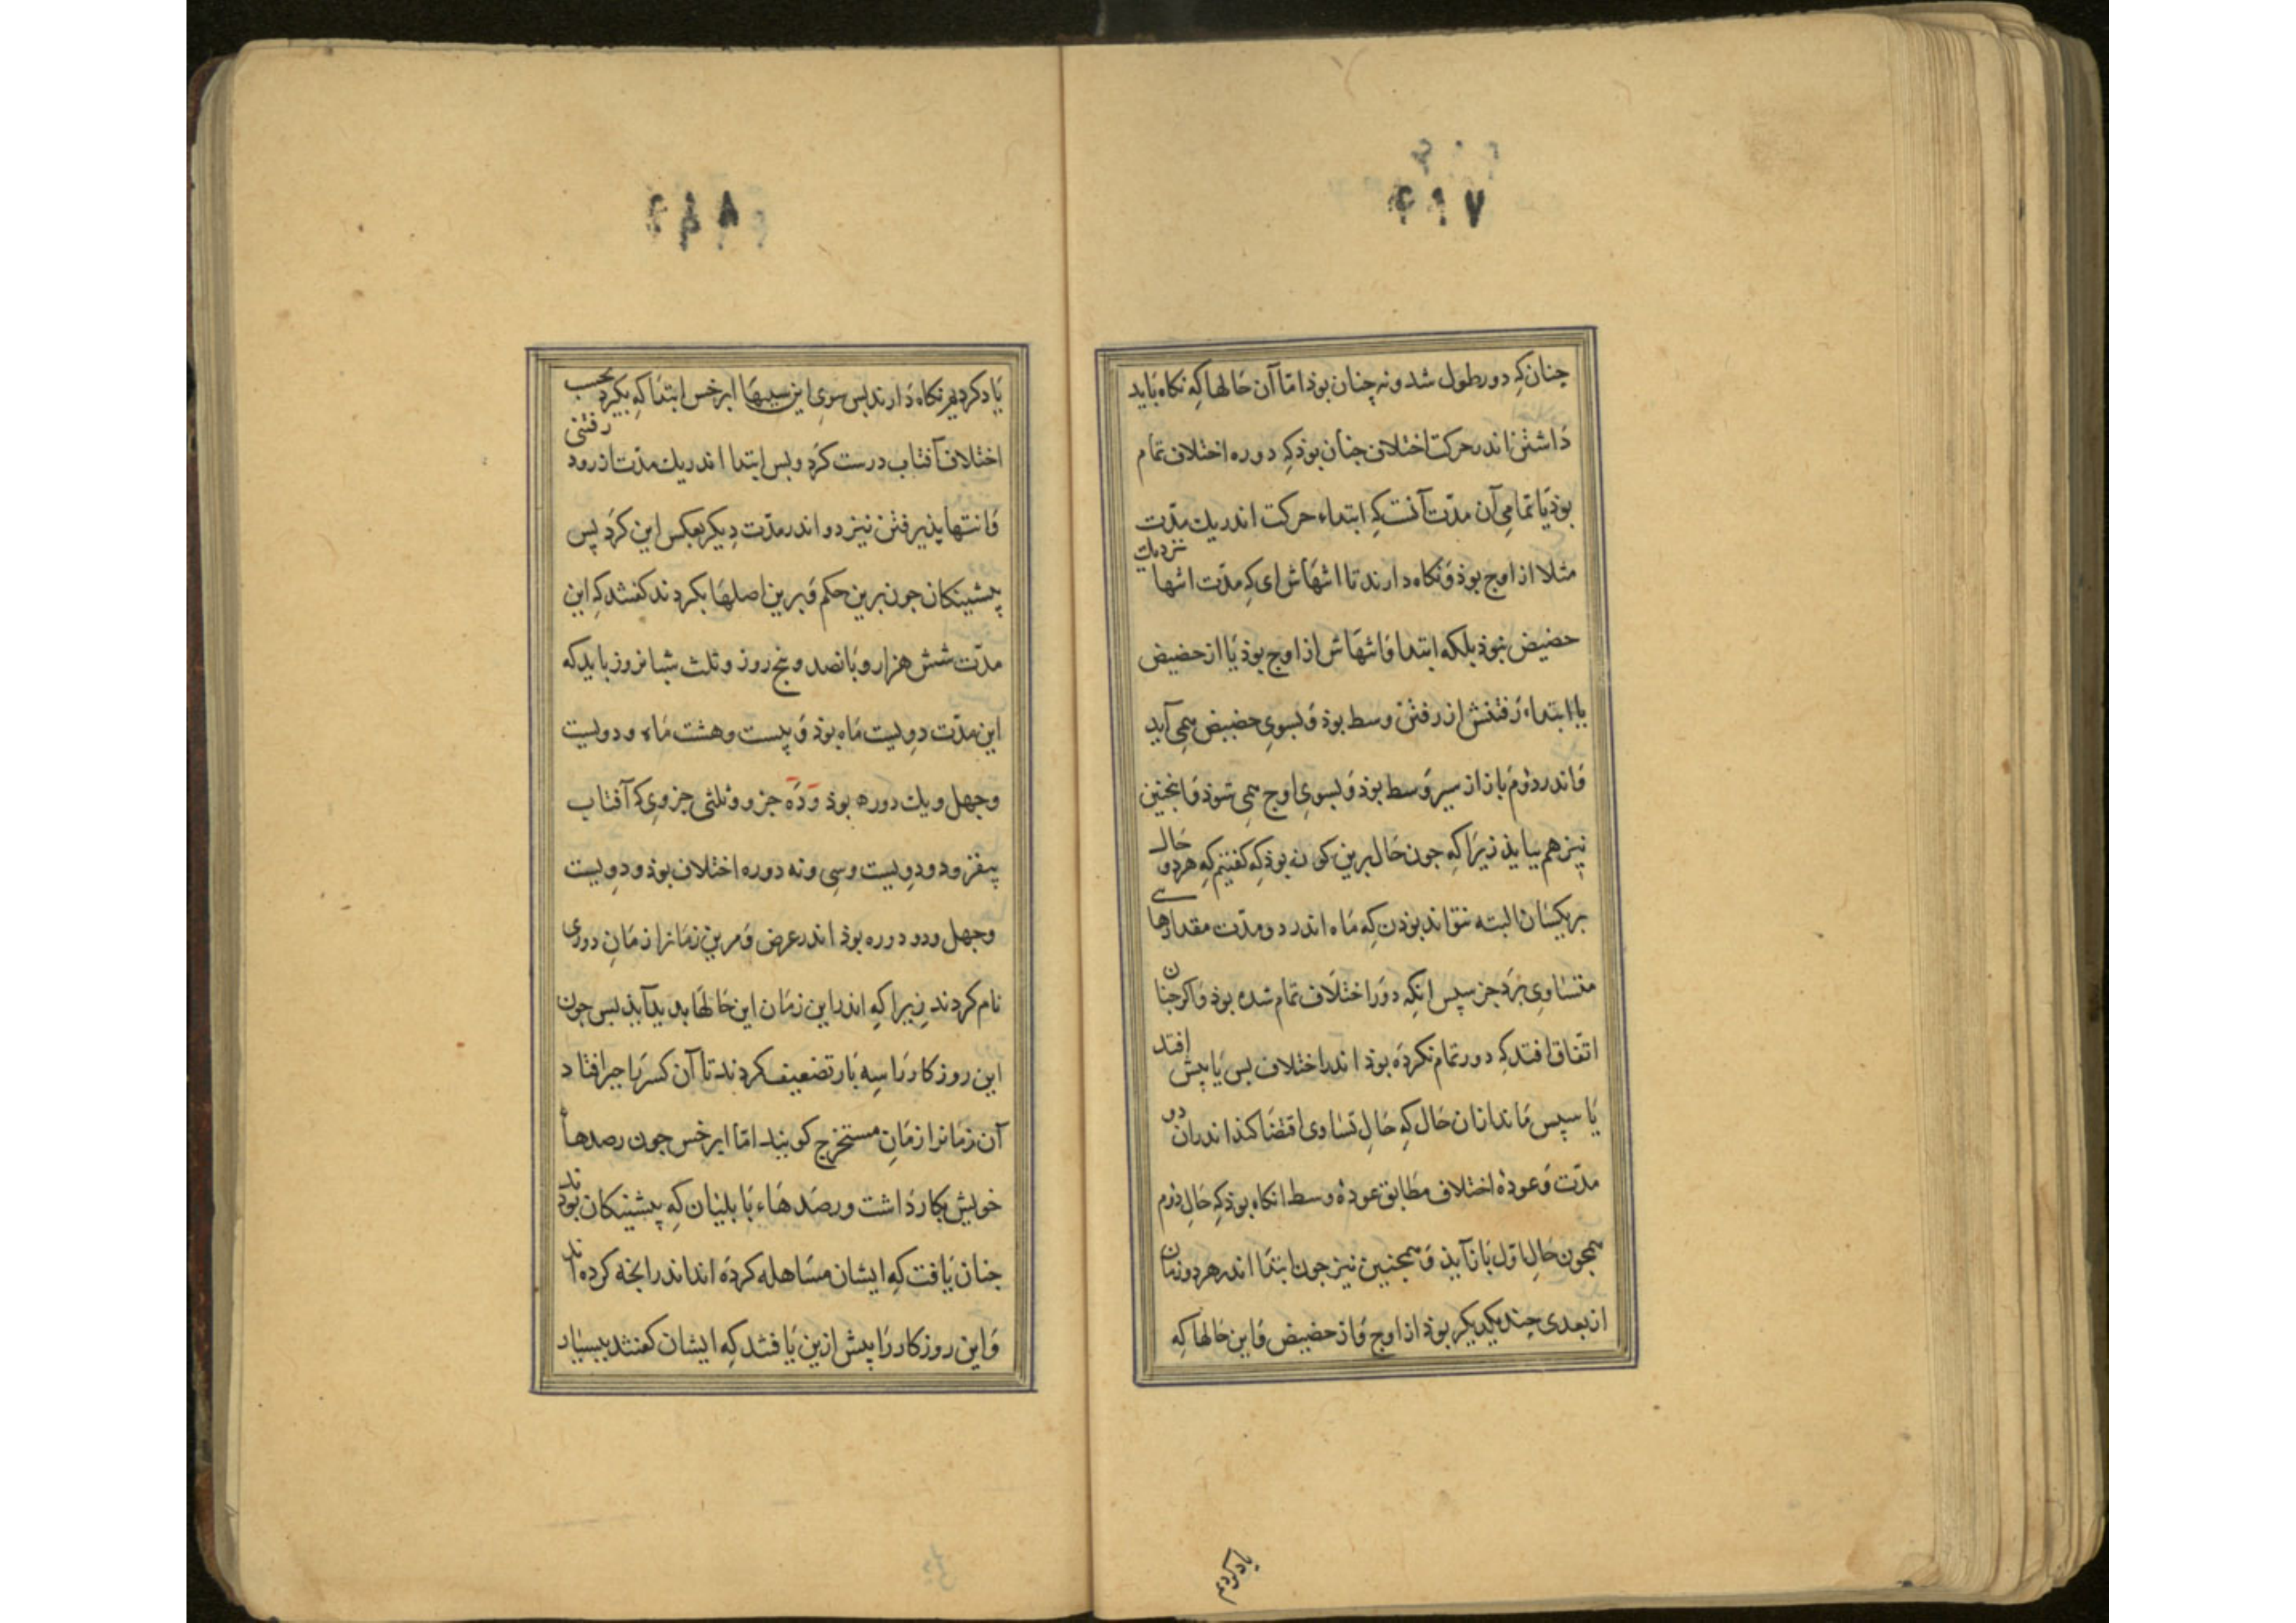 ۴۹۷
چنان که دور طول شد ونه چنان بوذ اما آن حالها که نکاه باید
داشتن اندر حرکت اختلاف جنان بوذ که دوره اختلاف تمام
بوذ یا تمامی آن مدّت آنست که ابتداء حرکت اندر یك مدّت
مثلا از اوج بوذ و نکاه دارند تا انتهاش ای که مدّت انتها نزدیك
حضیض نبوذ بلکه ابتدا و انتهاش از اوج بوذ یا از حضیض
یا ابتداء رفتنش از رفتن وسط بوذ و بسوی حضیض همی آید
و اندر دوم باز از سیر وسط بوذ و بسوی اوج همی شوذ و اینجنین
نیز هم بیایذ زیرا که جون حال برین کونه بوذ که کفتیم که هر دو حال
بریکسان البته نتواند بوذن که ماه اندر دو مدّت مقدارهای
متساوی برد جز سپس انکه دور اختلاف تمام شده بوذ و اکر جنان
اتفاق افتد که دور تمام نکرده بوذ اندر اختلاف بس یا پیش افتد
یا سپس ماند از ان حال که حال تساوی اقتضا کند اندران دو
مدّت و عوده اختلاف مطابق عوده وسط انکاه بوذ که حال دوم
همجون حال اول باز آیذ و همجنین نیز جون ابتدا اندر هر دو زمان
از بعدی جند یکدیکر بوذ از اوج و از حضیض و این حالها که
یاد کردیم
۴۹۸
یاد کردیم نکاه دارند بس سوی این سببها ابرخس ابتدا که بکرد بحسب
اختلاف آفتاب درست کرد و بس ابتدا اندر یك مدّت از رود رفتنی
و انتها پذیرفتن نیز دو اندر مدّت دیکر بعکس این کرد پس
پیشینکان جون برین حکم و برین اصلها بکردند کفتند که این
مدّت شش هزار و بانصد و پنج روز و ثلث شبانروز باید که
این مدّت دویست ماه بوذ و بیست و هشت ماه و دویست
و جهل و یك دوره بوذ و ده جزو و ثلثی جزوی که آفتاب
بیفزود و دویست و سی و نه دوره اختلاف بوذ و دویست
و جهل و دو دوره بوذ اندر عرض و مرین زمانرا زمان دوری
نام کردند زیرا که اندر این زمان این حالها بدید آیذ بس جون
این روزکار را سه بار تضعیف کردند تا آن کسر با جبر افتاد
آن زمانرا زمان مستخرج کویند اما ابرخس جون رصدهاء
خویش بکار داشت و رصدهاء بابلیان که پیشینکان بودند
جنان یافت که ایشان مساهله کرده اند اندر انجه کرده اند
و این روزکار را پیش ازین یافتند که ایشان کفتند ببسیار